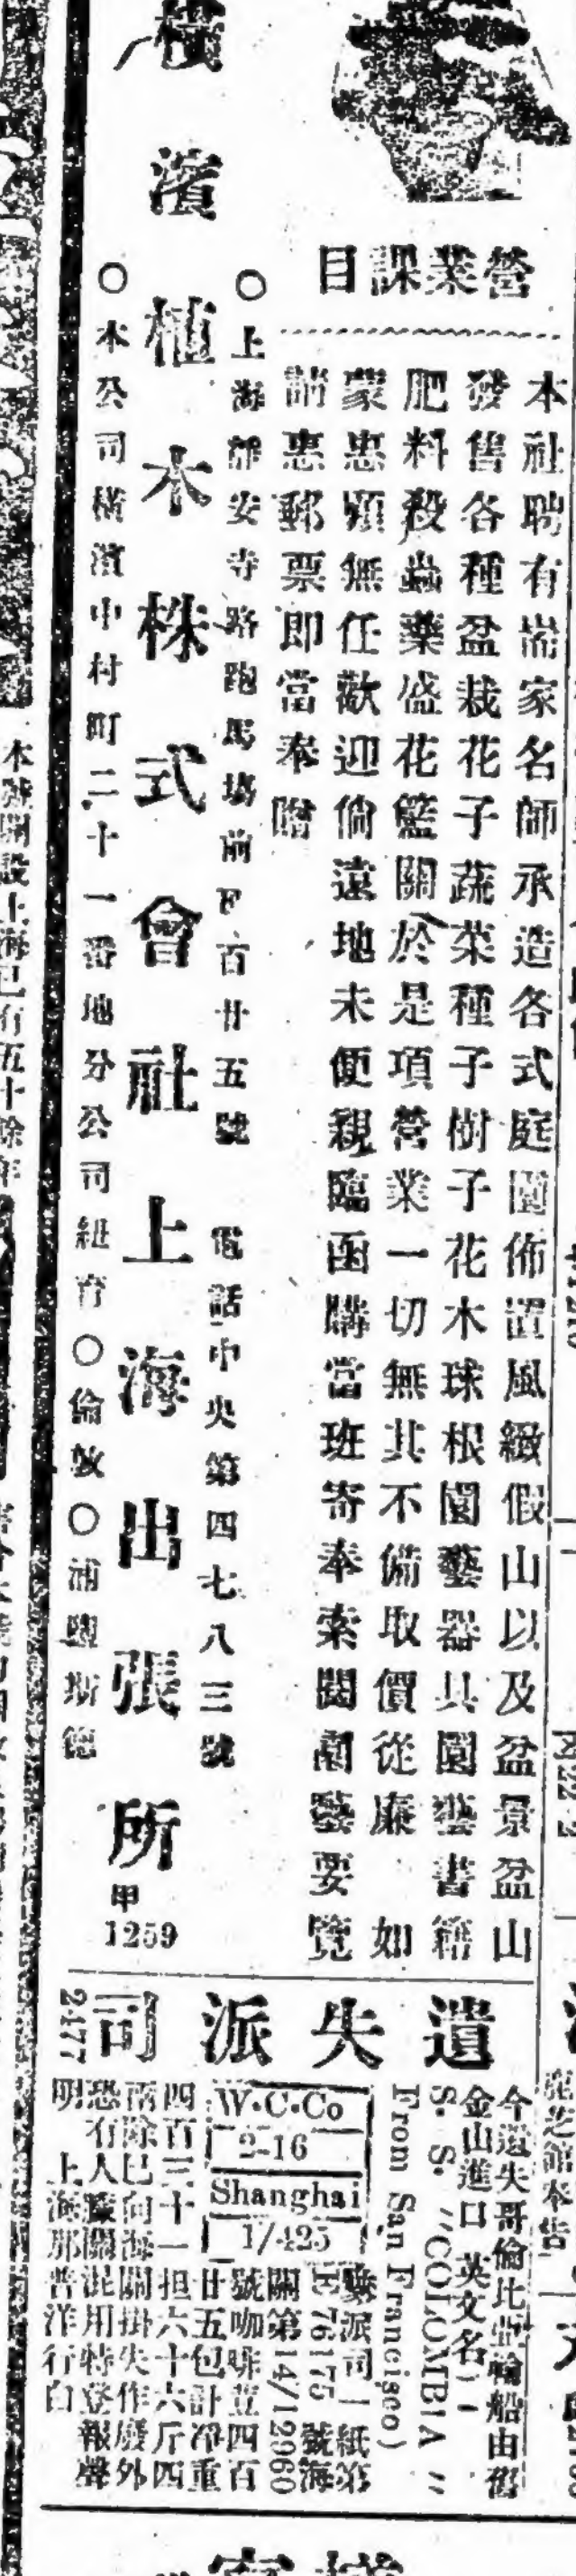 營業課目
本社聘有耑家名師承造各式庭園佈置風緻假山以及盆景盆山
發售各種盆栽花子蔬菜種子樹子花木球根園藝器具園藝書籍
肥料殺蟲藥盛花籃關於是項營業一切無其不備取價從廉 如
蒙惠顧無任歡迎倘遠地未便親臨函購當班寄奉索閱園藝要覽
請惠郵票即當奉贈
○上海靜安寺路跑馬場前F百廿五號 電話中央第四七八三號
橫濱植木株式會社上海出張所
甲
1259
○本公司橫濱中村町二十一番地分公司紐育○倫敦○浦鹽斯德
遺失派司
今遺失哥倫比亞輪船由舊
金山進口(英文名)
S. S. "COLOMBIA"
From San Francisco)
驗派司一紙第
E 76175 號海
關第14/12960
W.C.Co
2-16
Shanghai
1/425
號咖啡荳四百
廿五包計淨重
四百三十一担六十六斤四
兩除已向海關掛失作廢外
恐有人朦關混用特登報聲
明 上海那普洋行白
2477
本號開設上海已有五十餘年